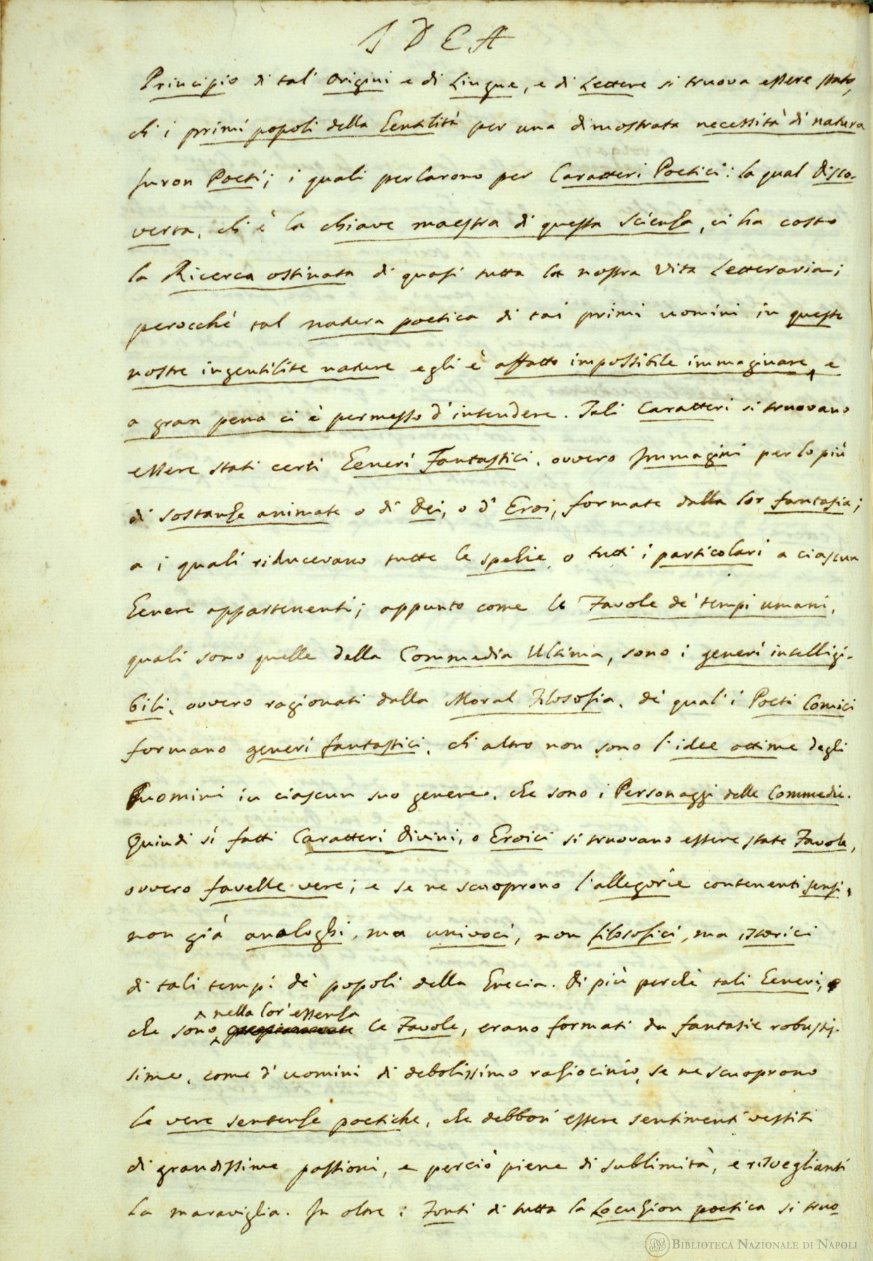 IDEA
Principio di tal' Origini e di Lingue, e di Lettere si truova essere stato,
ch' i primi popoli della Gentilità per una dimostrata necessità di natura
furon Poeti; i quali parlarono per Caratteri Poetici: la qual Disco-
verta, ch' è la chiave maestra di questa Scienza, ci ha costo
la Ricerca ostinata di quasi tutta la nostra Vita Letteraria;
perocchè tal natura poetica di tai primi uomini in queste
nostre ingentilite nature egli è affatto impossibile immaginare, e
a gran pena ci è permesso d'intendere. Tali Caratteri si truovano
essere stati certi Generi Fantastici, ovvero Immagini per lo più
di sostanze animate o di Dei, o d' Eroi, formate dalla lor fantasia;
a i quali riducevano tutte le spezie, o tutti i particolari a ciascun
Genere appartenenti; appunto come le Favole de' tempi umani,
quali sono quelle della Commedia Ultima, sono i generi intelligi-
bili, ovvero ragionati dalla Moral Filosofia, de' quali i Poeti Comici
formano generi fantastici, ch' altro non sono l'idee ottime degli
uomini in ciascun suo genere, che sono i Personaggi delle Commedie.
Quindi sì fatti Caratteri Divini, o Eroici si truovano essere state Favole,
ovvero favelle vere; e se ne scuoprono l'allegorie contenenti sensi,
non già analoghi, ma univoci, non filosofici, ma istorici
di tali tempi de' popoli della Grecia. Di più perchè tali Generi,
che sono nella lor' essenza le Favole, erano formati da fantasie robustis-
sime, come d' uomini di debolissimo raziocinio, se ne scuoprono
le vere sentenze poetiche, che debbon' essere sentimenti vestiti
di grandissime passioni, e perciò piene di sublimità, e risveglianti
la maraviglia. In oltre i Fonti di tutta la Locuzion poetica si truo
BIBLIOTECA NAZIONALE DI NAPOLI